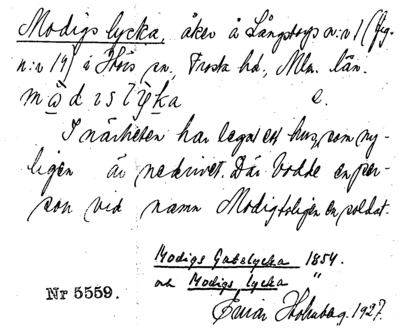 Modigs lycka, åker å Långstorps n:r 1 (fig.
n:r 19) i Hörs sn, Frosta hd, Mlm. län.
e.
I närheten har legat ett hus, som ny-
ligen är nedrivet. Där bodde en per-
son vid namn Modig, troligen en soldat.
Modigs Gatelycka 1854.
och Modigs lycka "
Nr 5559.
Einar 1927.